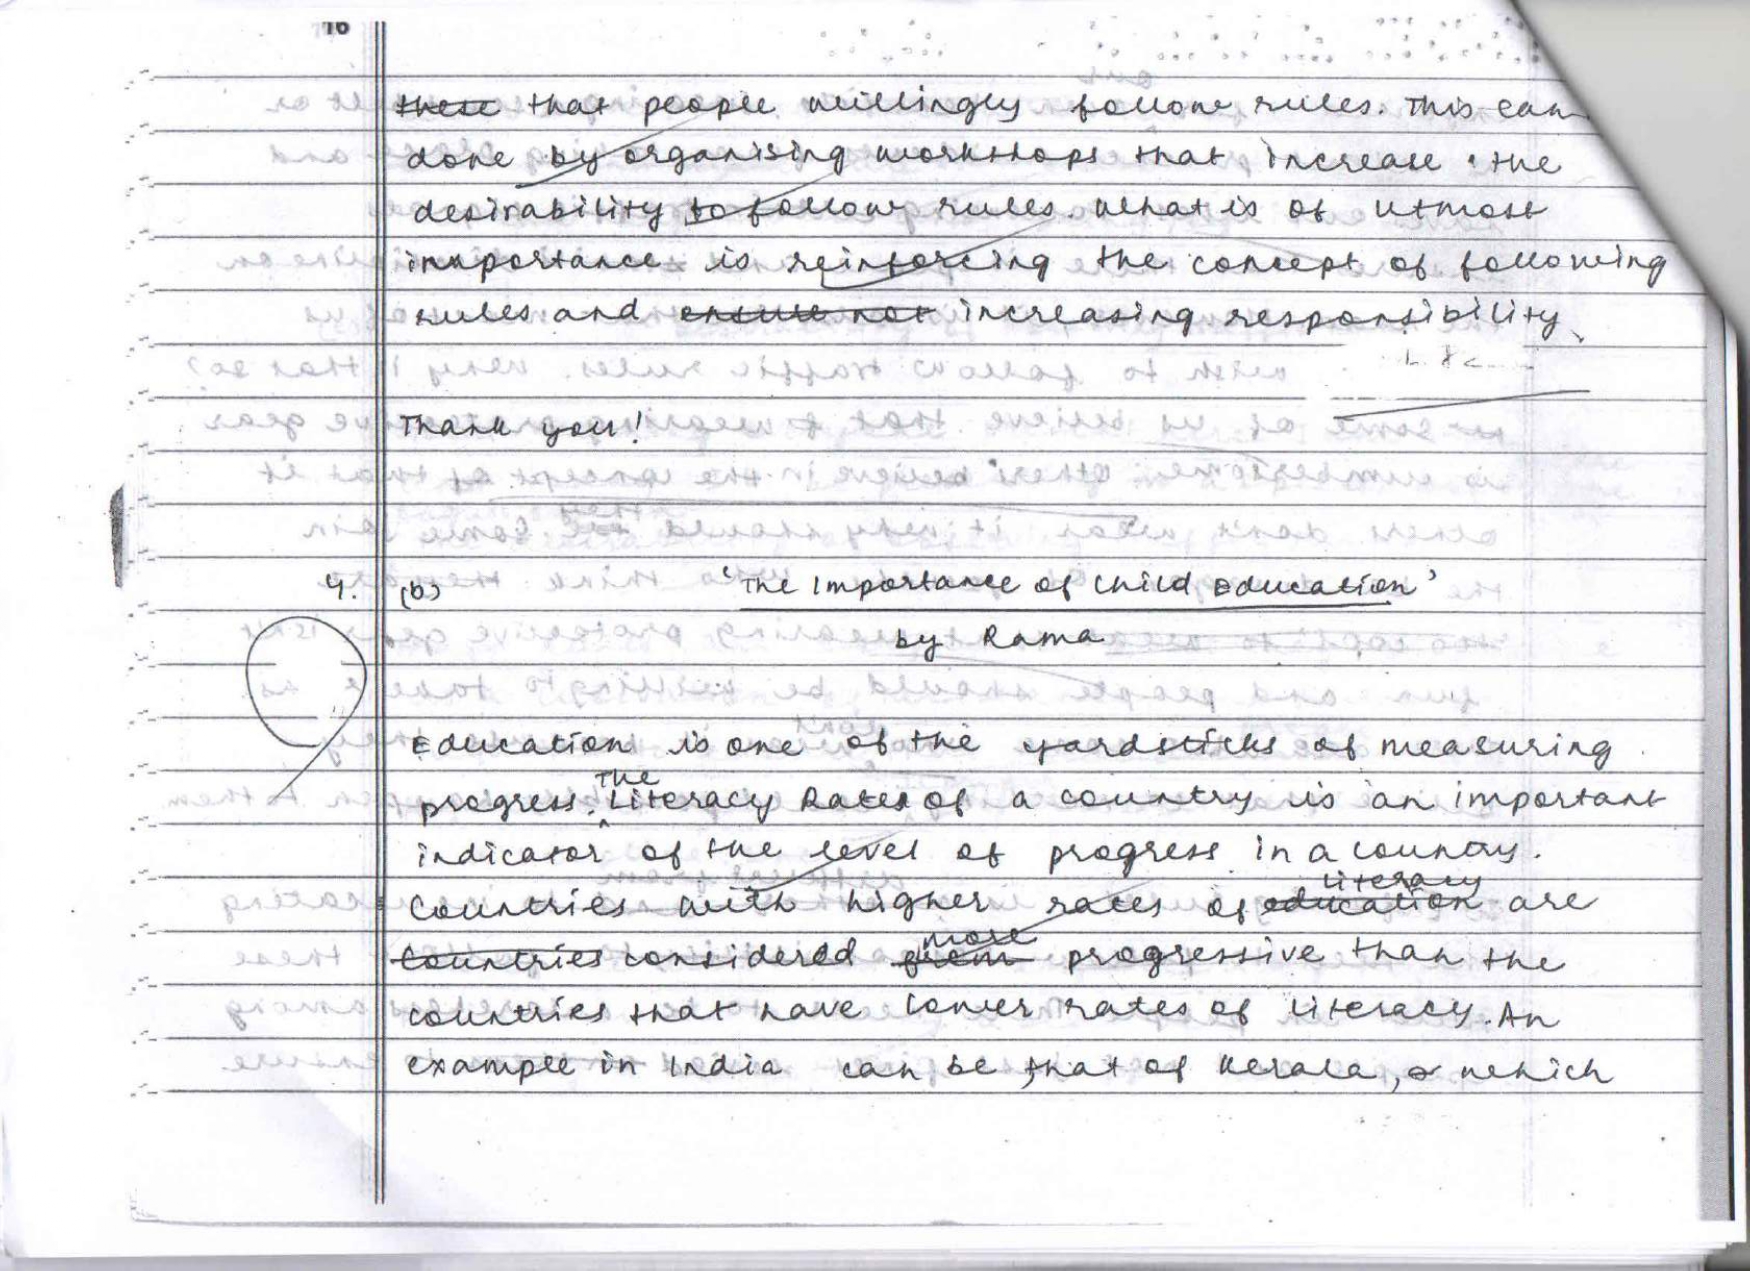 16
these that people willingly follow rules. This can
done by organising workshops that increase the
desirability to follow rules. What is of utmost
importance is reinforcing the concept of following
rules and ensure not increasing responsibility.
Thank you!
4. (b) 'The Importance of Child Education'
by Rama
Education is one of the yardsticks of measuring
progress. The Literacy Rates of a country is an important
indicator of the level of progress in a country.
Countries with higher rates of education literacy are
countries considered more progressive than the
countries that have lower rates of literacy. An
example in India can be that of Kerala, which